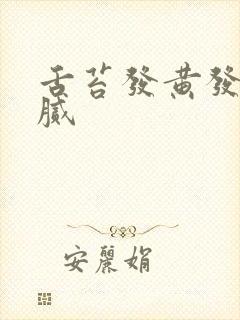 舌苔發黃發
膩
安麗娟